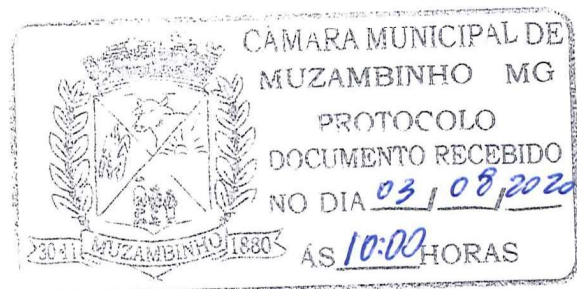 CÂMARA MUNICIPAL DE
MUZAMBINHO MG
PROTOCOLO
DOCUMENTO RECEBIDO
NO DIA 03 / 08 / 2020
ÁS 10:00 HORAS
MUZAMBINHO 1880